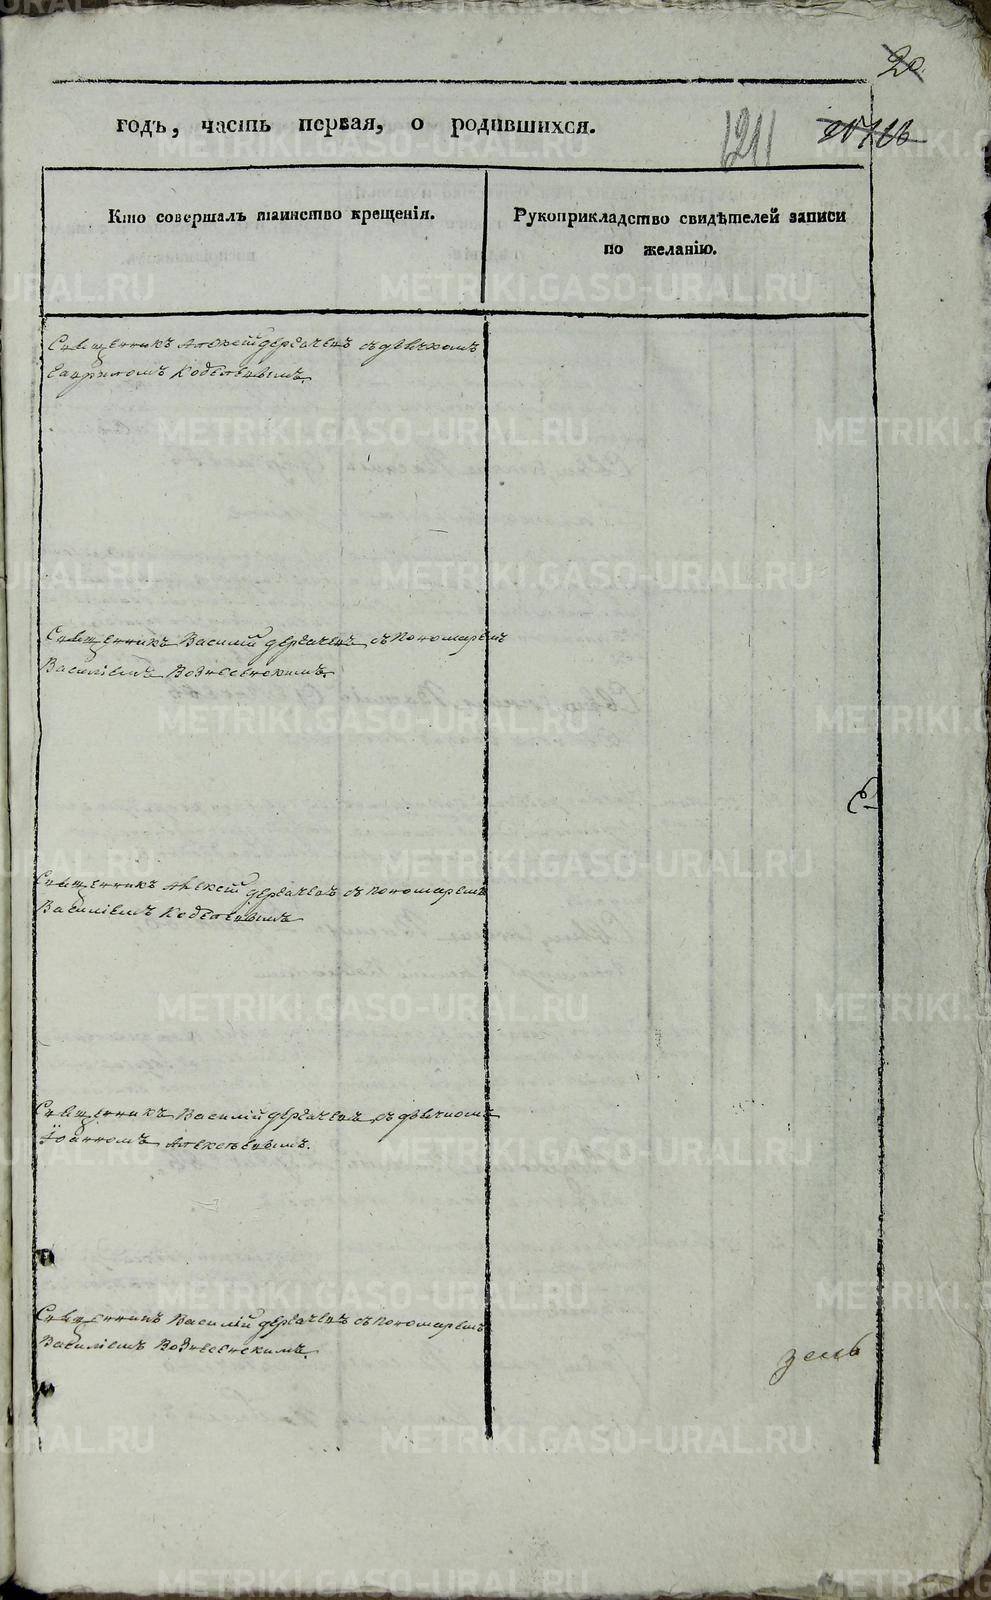 20
годъ, часть первая, о родившихся.
1211
Кто совершалъ таинство крещенія.
Рукоприкладство свидѣтелей записи
по желанію.
Священникъ Алексей Дергачевъ съ дьячкомъ
Гавриломъ
Священникъ Василій Дергачевъ съ пономаремъ
Василіемъ Вознесенскимъ.
Священникъ Алексей Дергачевъ съ пономаремъ
Василіемъ
Священникъ Василій Дергачевъ съ дьячкомъ
Іоанномъ Алексѣевымъ.
Священникъ Василій Дергачевъ съ пономаремъ
Василіемъ Вознесенскимъ.
METRIKI.GASO-URAL.RU